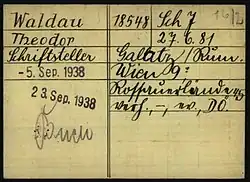 Waldau 18548 Sch 7
Theodor 27.6.81
Schriftsteller Galatz/Rum.
-5. Sep. 1938 Wien 9.
23. Sep. 1938 Rossauerlände
verh., -, ev., DO.